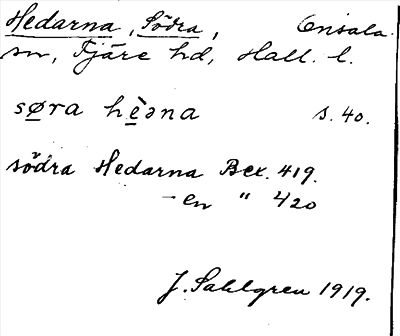 Hedarna, Södra, Onsala
sn, Fjäre hd, Hall. l.
søra hèǝna s. 40.
södra Hedarna Bex. 419.
- en " 420
J. Sahlgren 1919.